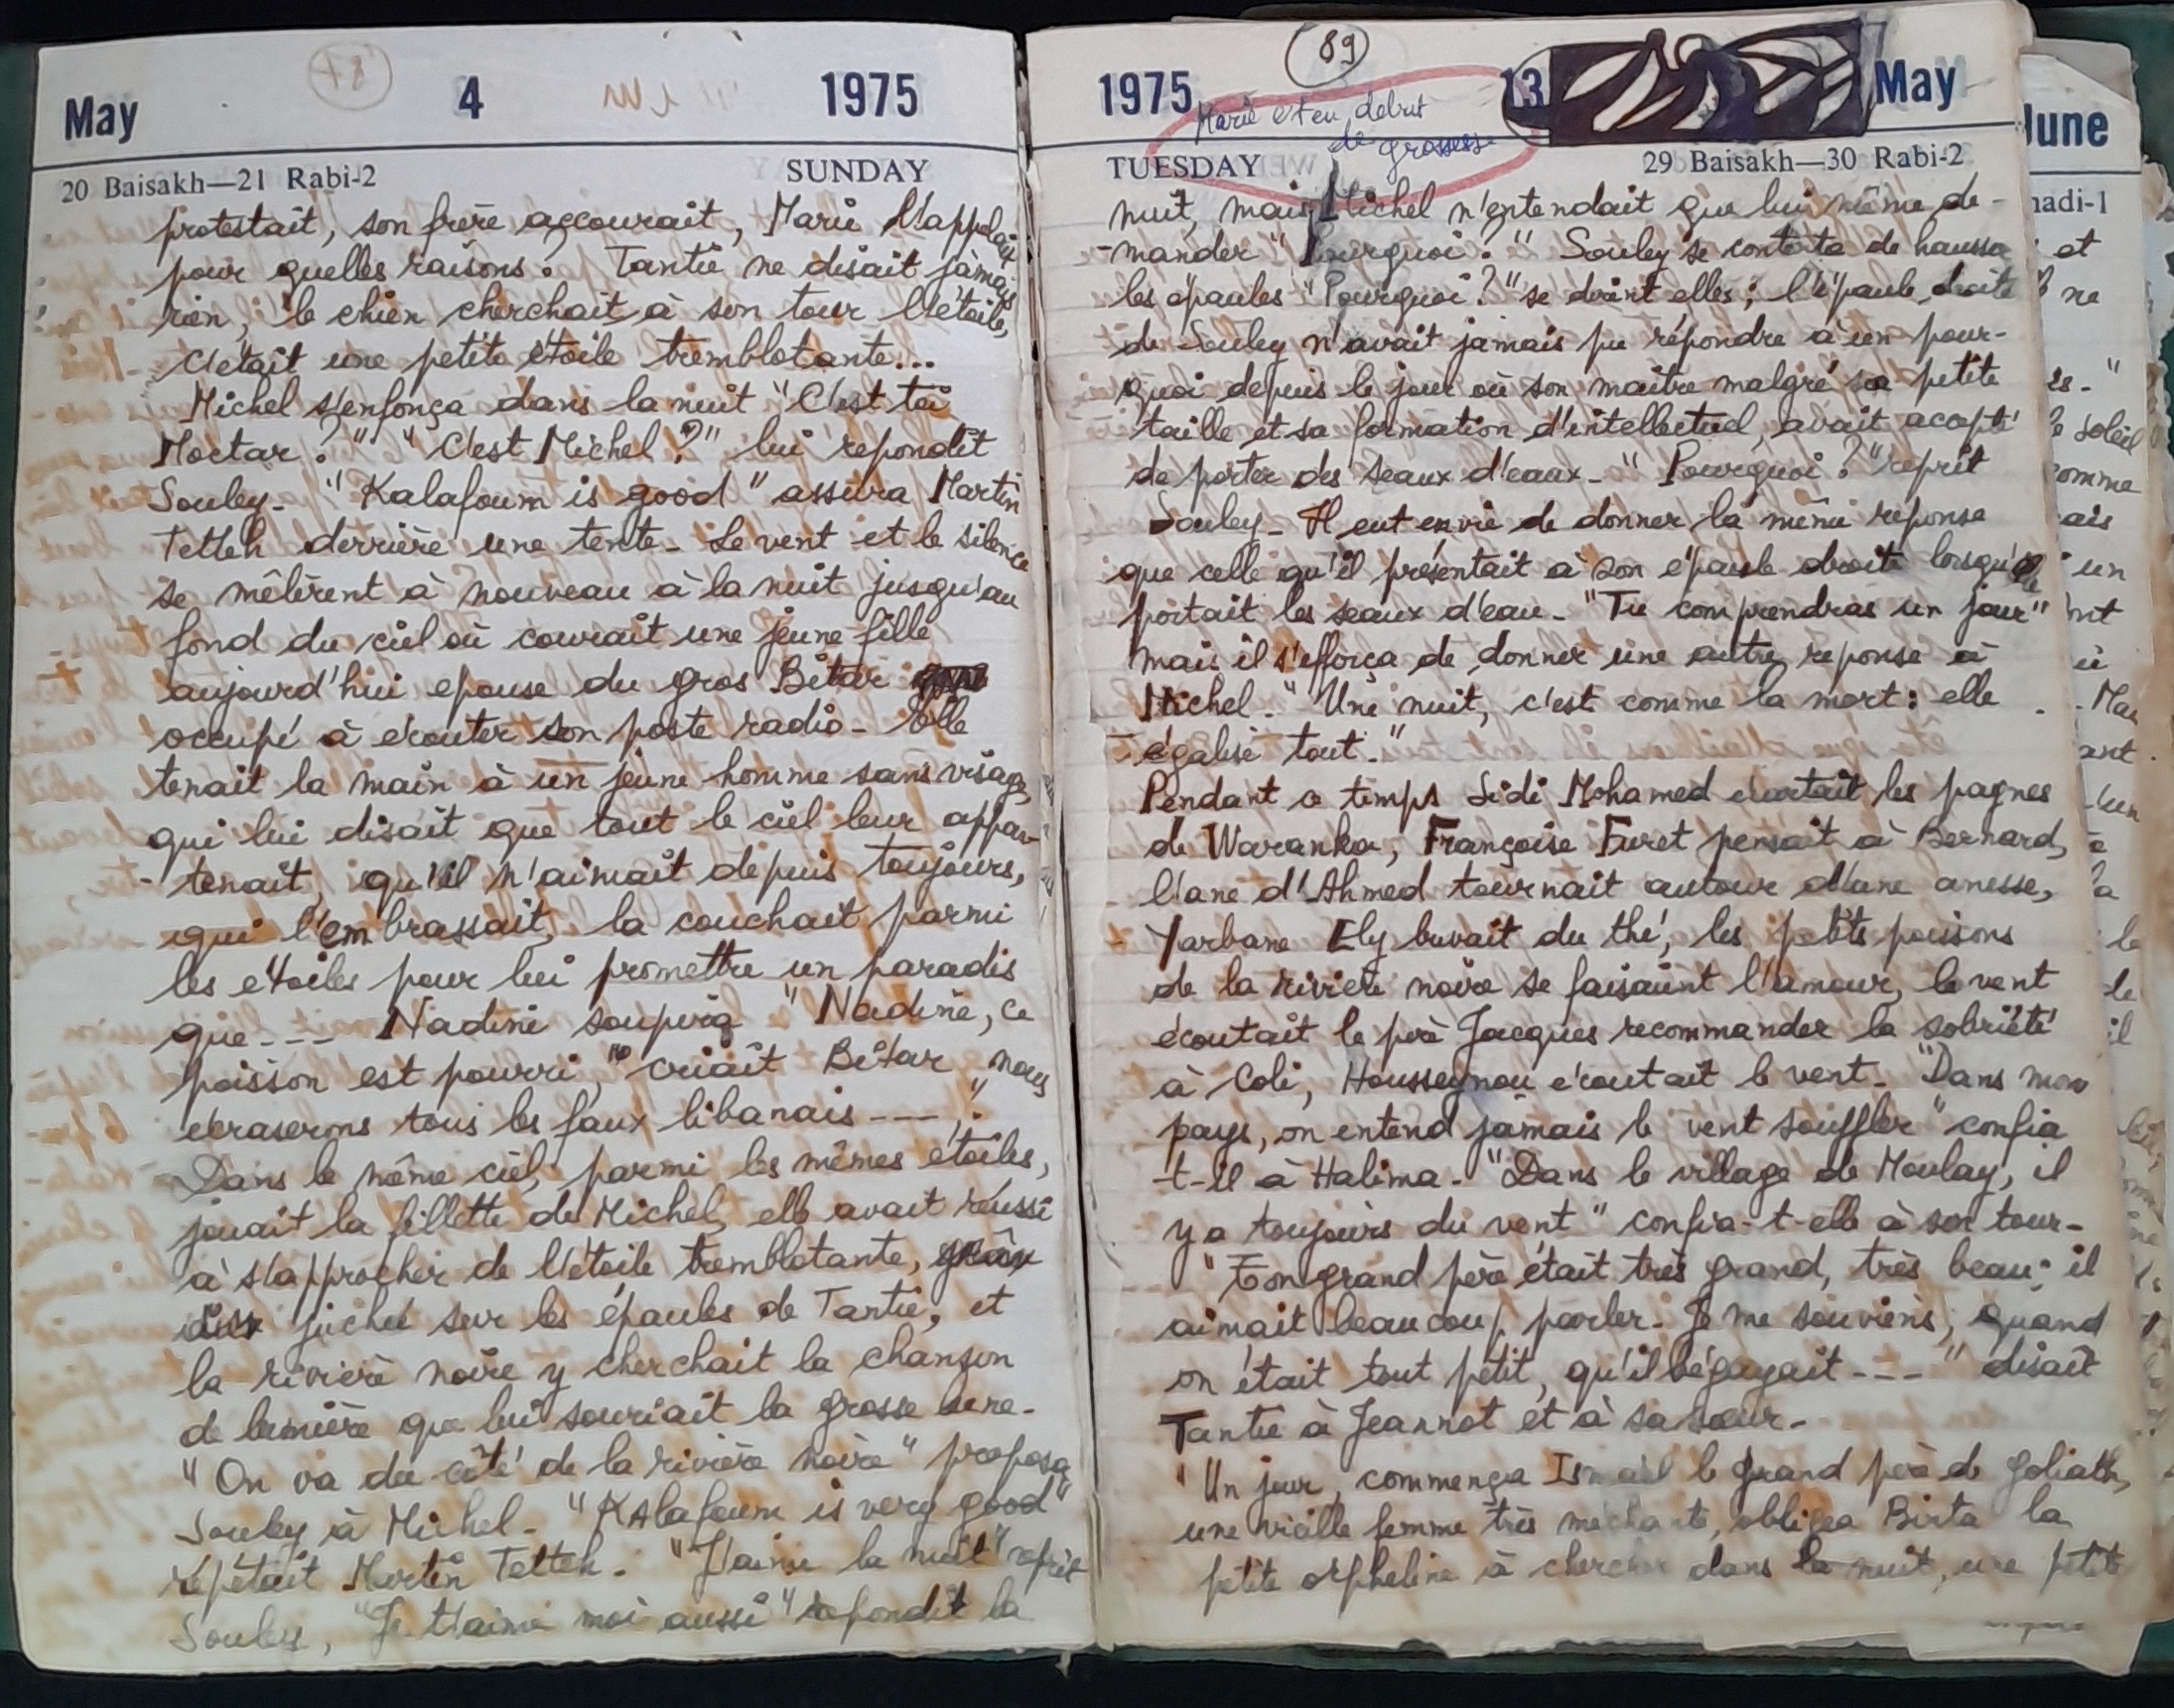 May 4 1975
20 Baisakh—21 Rabi-2 SUNDAY
protestait, son frère accourait, Marie l'appelait
pour quelles raisons? Tantie ne disait jamais
rien, le chien cherchait à son tour l'étoile,
c'était une petite étoile tremblotante...
Michel s'enfonça dans la nuit "C'est toi
Moctar?" "C'est Michel?" lui repondit
Souley. "Kalafoum is good" assura Martin
Tetteh derrière une tente. Le vent et le silence
se mêlèrent à nouveau à la nuit jusqu'au
fond du ciel où courait une jeune fille
aujourd'hui epouse du gros Bitar
occupé à ecouter son poste radio. Elle
tenait la main à un jeune homme sans visage
qui lui disait que tout le ciel leur appar-
-tenait, qu'il n'aimait depuis toujours,
qui l'embrassait, la couchait parmi
les etoiles pour lui promettre un paradis
que --- Nadine soupira "Nadine, ce
poisson est pourri," criait Bitar "nous
ecraserons tous les faux libanais ---"
Dans le même ciel, parmi les mêmes étoiles,
jouait la fillette de Michel, elle avait réussi
à s'approcher de l'étoile tremblotante,
juchée sur les épaules de Tantie, et
la rivière noire y cherchait la chanson
de lumière que lui souriait la grosse lune.
"On va du côté de la rivière noire" proposa
Souley à Michel. "Kalafoum is very good"
répétait Martin Tetteh. "J'aime la nuit" reprit
Souley, "Je t'aime moi aussi" repondit la
89
1975 13 May
Marie et eu, debut
de grossesse
TUESDAY 29 Baisakh—30 Rabi-2
nuit, mais Michel n'entendait que lui même de-
-mander "Pourquoi?" Souley se contenta de hausser
les epaules "Pourquoi?" se dirent elles; l'épaule droite
de Souley n'avait jamais pu répondre à un pour-
quoi depuis le jour où son maître malgré sa petite
taille et sa formation d'intellectuel, avait accepté
de porter des seaux d'eaux. "Pourquoi?" reprit
Souley. Il eut envie de donner la même reponse
que celle qu'il présentait à son épaule droite lorsqu'elle
portait les seaux d'eau. "Tu comprendras un jour"
mais il s'efforça de donner une autre reponse à
Michel. "Une nuit, c'est comme la mort: elle
égalise tout."
Pendant ce temps Sidi Mohamed écartait les pagnes
de Waranka, Françoise Furet pensait à Bernard,
l'ane d'Ahmed tournait autour d'une anesse,
Yarbana Ely buvait du thé, les petits poissons
de la rivière noire se faisaient l'amour, le vent
écoutait le père Jacques recommander la sobriété
à Coli, Housseynou écoutait le vent. "Dans mon
pays, on entend jamais le vent souffler" confia
-t-il à Halima. "Dans le village de Moulay, il
y a toujours du vent" confia-t-elle à son tour.
"Ton grand père était très grand, très beau; il
aimait beaucoup parler. Je me souviens, quand
on était tout petit, qu'il bégayait ---" disait
Tantie à Jeannot et à sa sœur.
"Un jour, commença Ismaël le grand père de Goliath,
une vieille femme très méchante, obligea Birta la
petite orpheline à chercher dans la nuit, une petite
June